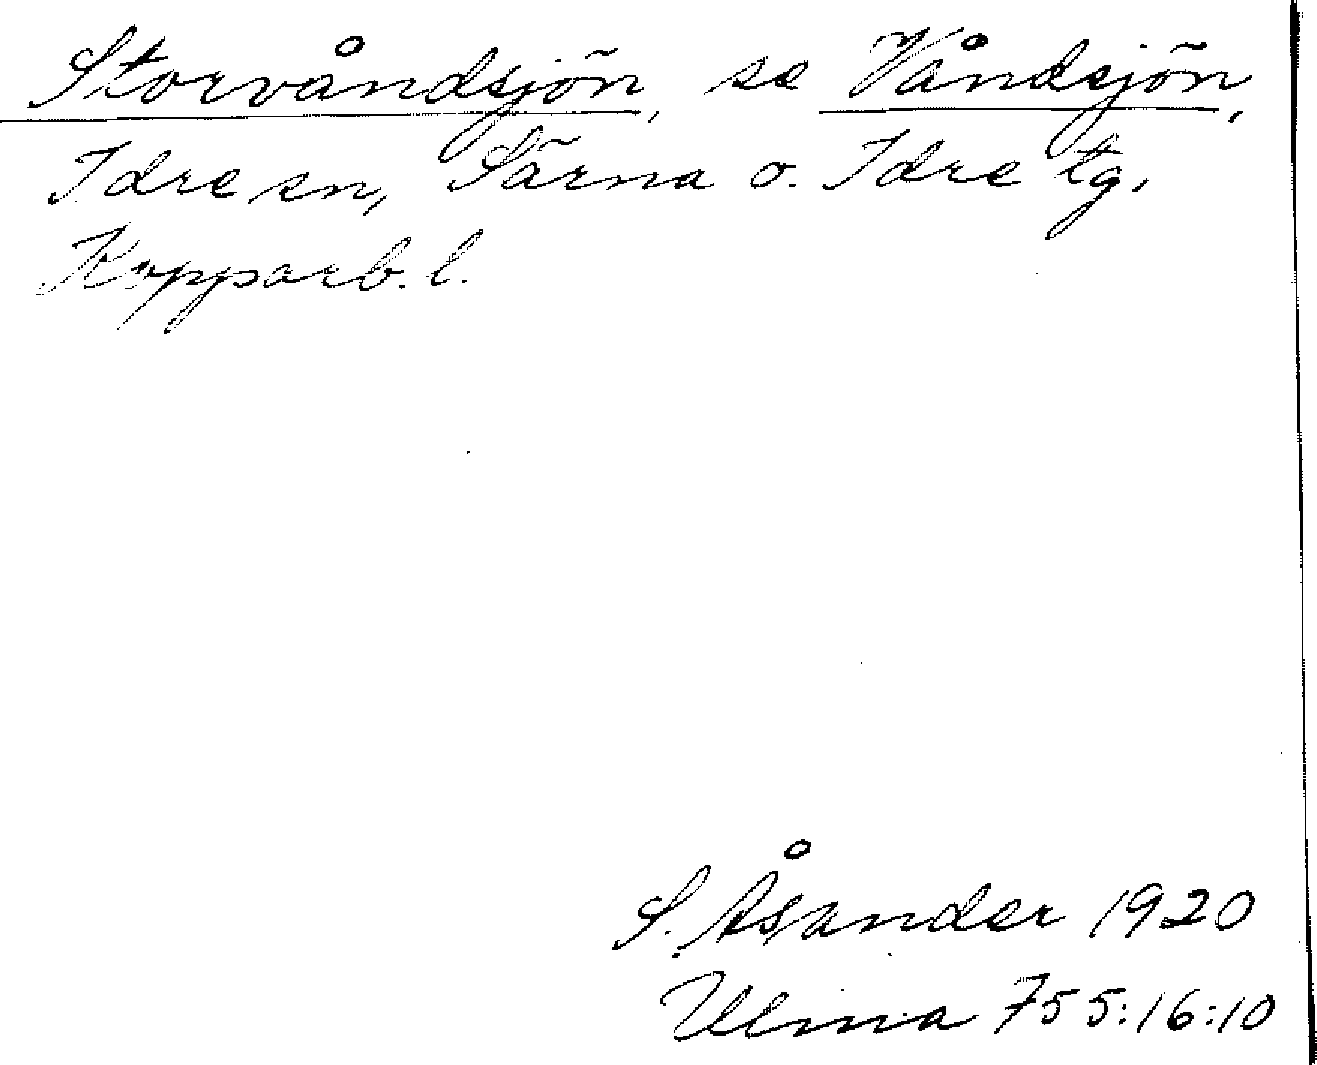 Storvåndsjön, se Våndsjön,
Idre sn, Särna o. Idre tg,
Kopparb. l.
S. Åsander 1920
Ulma 755:16:10